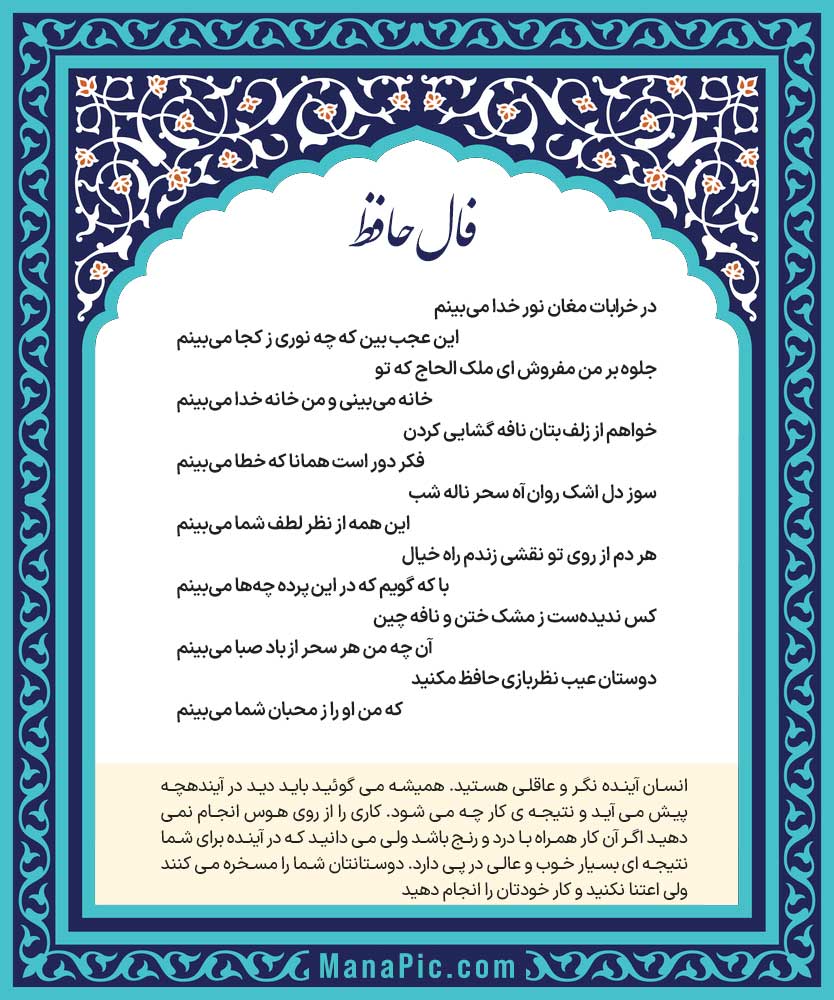 فال حافظ
در خرابات مغان نور خدا می‌بینم
این عجب بین که چه نوری ز کجا می‌بینم
جلوه بر من مفروش ای ملک الحاج که تو
خانه می‌بینی و من خانه خدا می‌بینم
خواهم از زلف بتان نافه گشایی کردن
فکر دور است همانا که خطا می‌بینم
سوز دل اشک روان آه سحر ناله شب
این همه از نظر لطف شما می‌بینم
هر دم از روی تو نقشی زندم راه خیال
با که گویم که در این پرده چه‌ها می‌بینم
کس ندیده‌ست ز مشک ختن و نافه چین
آن چه من هر سحر از باد صبا می‌بینم
دوستان عیب نظربازی حافظ مکنید
که من او را ز محبان شما می‌بینم
انسان آینده نگر و عاقلی هستید. همیشه می گوئید باید دید در آیندهچه
پیش می آید و نتیجه ی کار چه می شود. کاری را از روی هوس انجام نمی
دهید اگر آن کار همراه با درد و رنج باشد ولی می دانید که در آینده برای شما
نتیجه ای بسیار خوب و عالی در پی دارد. دوستانتان شما را مسخره می کنند
ولی اعتنا نکنید و کار خودتان را انجام دهید
ManaPic.com